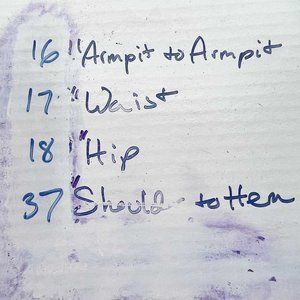 16" Armpit to Armpit
17" Waist
18" Hip
37" Should to Hem